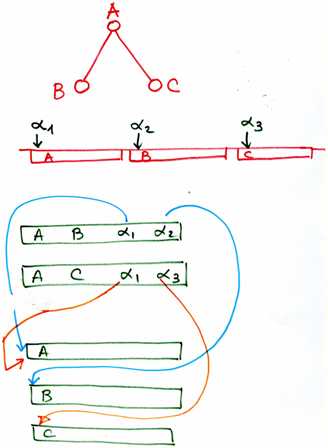 A
B C
α1 α2 α3
A B C
A B α1 α2
A C α1 α3
A
B
C